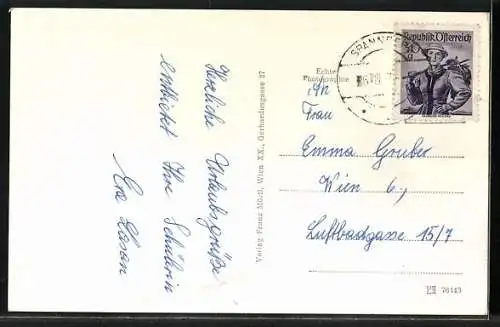 Herzliche Urlaubsgrüße
entbietet Ihre Schülerin
Eva
Verlag Franz Mörtl, Wien XX., Gerhardusgasse 27
Echte
Photographie
SPANN
Republik Österreich
An
Frau
Emma Gruber
Wien 6.,
Luftbadgasse 15/7
76143